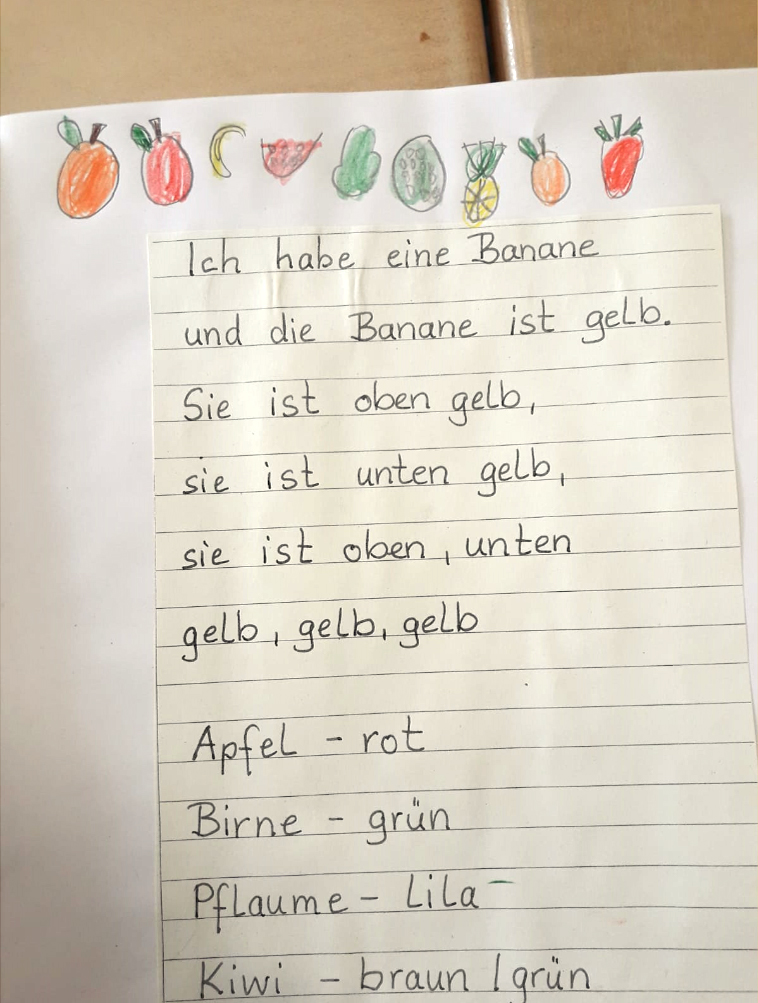 Ich habe eine Banane
und die Banane ist gelb.
Sie ist oben gelb,
sie ist unten gelb,
sie ist oben, unten
gelb, gelb, gelb
Apfel - rot
Birne - grün
Pflaume - Lila
Kiwi - braun / grün